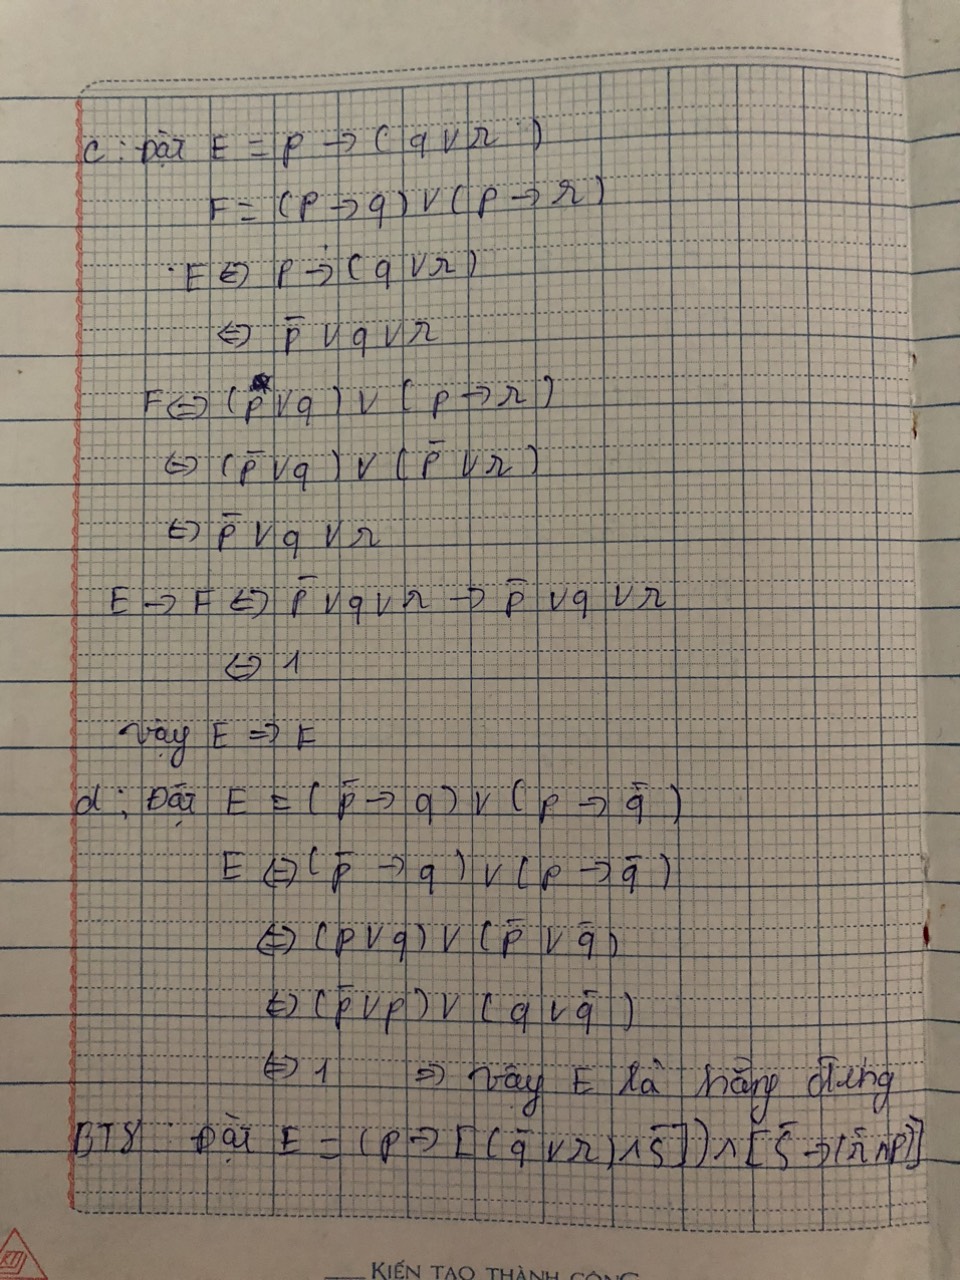 c : Đặt E = p → ( q ∨ r )
F = (p → q) ∨ (p → r)
E ⇔ p → ( q ∨ r)
⇔ p̄ ∨ q ∨ r
F ⇔ (p̄ ∨ q ) ∨ ( p → r )
⇔ (p̄ ∨ q ) ∨ ( p̄ ∨ r )
⇔ p̄ ∨ q ∨ r
E → F ⇔ p̄ ∨ q ∨ r → p̄ ∨ q ∨ r
⇔ 1
Vậy E ⇒ F
d : Đặt E = ( p̄ → q ) ∨ ( p → q̄ )
E ⇔ ( p̄ → q ) ∨ (p → q̄ )
⇔ (p ∨ q) ∨ (p̄ ∨ q̄)
⇔ (p̄ ∨ p) ∨ ( q ∨ q̄ )
⇔ 1 ⇒ Vậy E là hằng đúng
BT8 Đặt E = (p → [ ( q̄ ∨ r ) ∧ s̄ ]) ∧ [ s̄ → ( r̄ ∧ p) ]
KIẾN TẠO THÀNH CÔNG